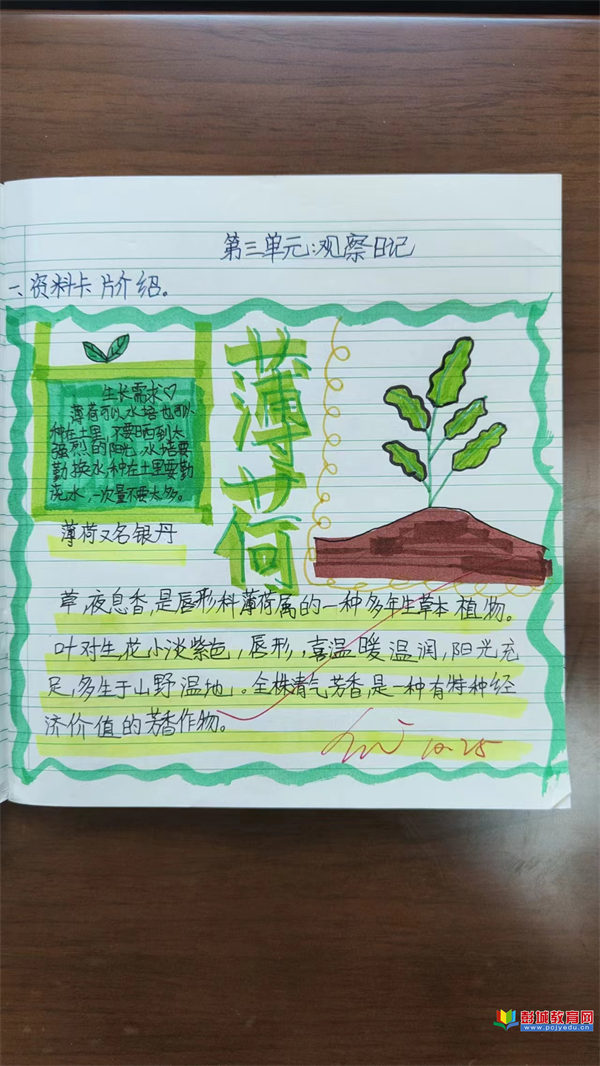 第三单元:观察日记
一、资料卡片介绍。
生长需求♡
薄荷可以水培也可以
种在土里,不要晒到太
强烈的阳光,水培要
勤换水,种在土里要勤
浇水,一次量不要太多。
薄荷
薄荷又名银丹
草,夜息香,是唇形科薄荷属的一种多年生草本植物。
叶对生,花小淡紫色,唇形,喜温暖温润,阳光充
足,多生于山野湿地。全株清气芳香,是一种有特种经
济价值的芳香作物。
10.25
彭城教育网
www.pcjyedu.cn